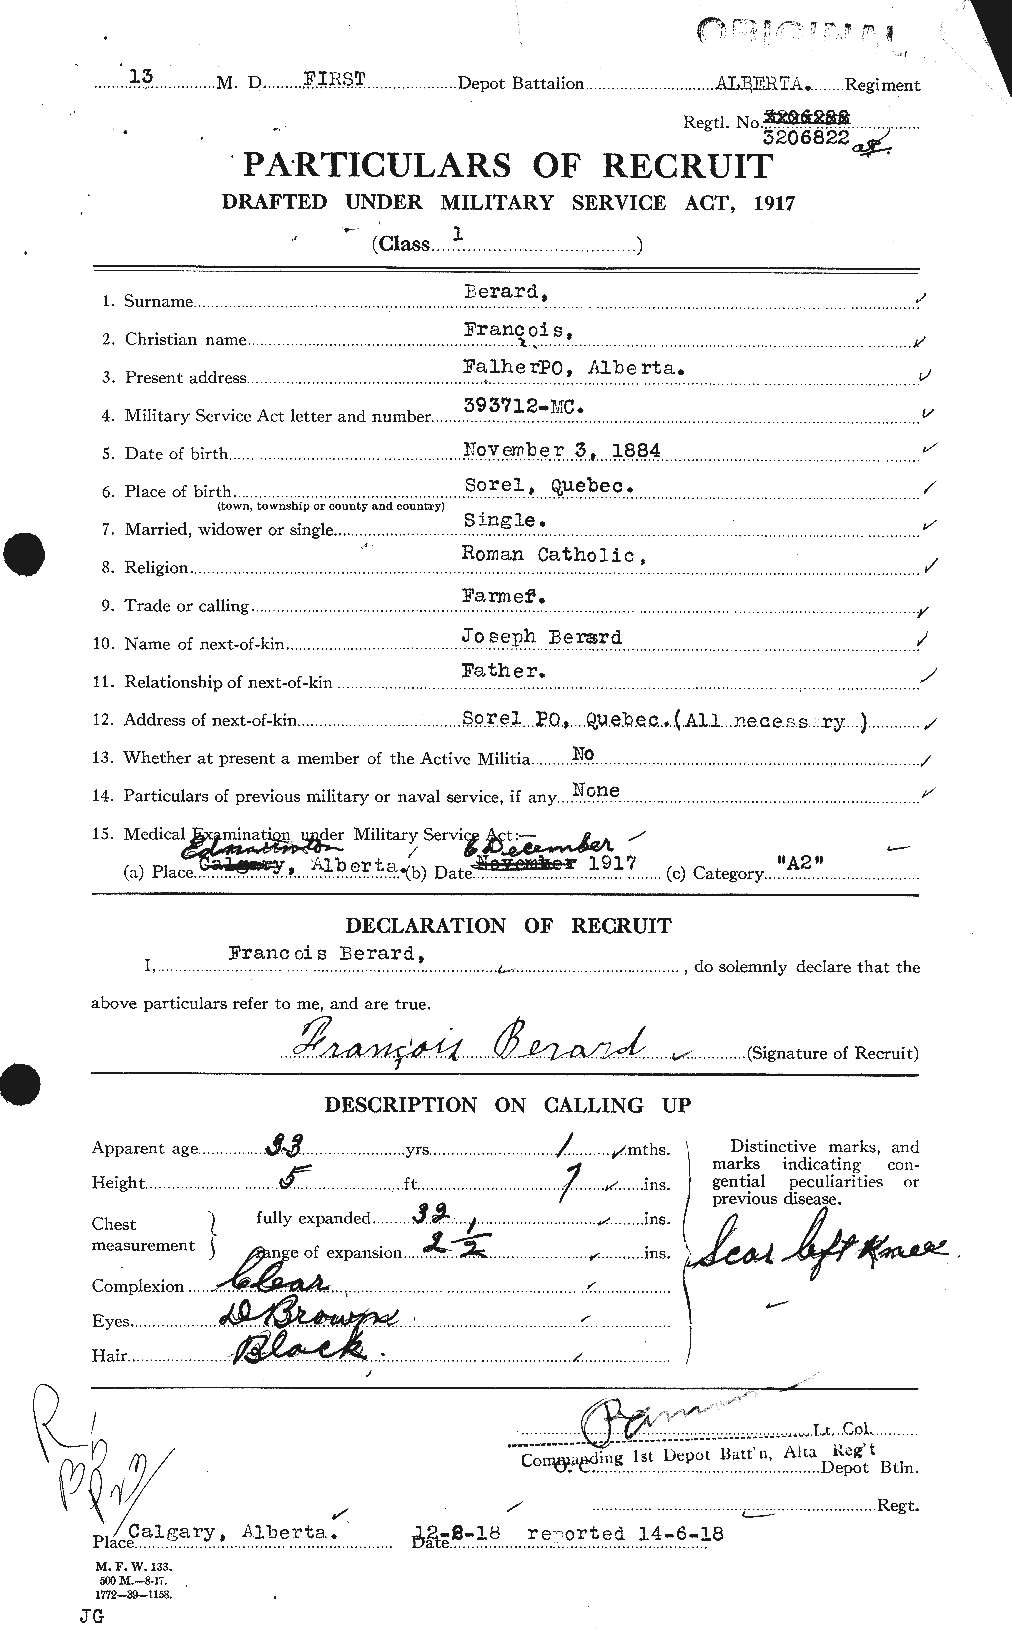 ORIGINAL
13 M. D. FIRST Depot Battalion ALBERTA. Regiment
Regtl. No. 3206288
3206822
PARTICULARS OF RECRUIT
DRAFTED UNDER MILITARY SERVICE ACT, 1917
(Class 1 )
1. Surname Berard,
2. Christian name François,
3. Present address FalherPO, Alberta.
4. Military Service Act letter and number 393712-MC.
5. Date of birth November 3, 1884
6. Place of birth Sorel, Quebec.
(town, township or county and country)
7. Married, widower or single Single.
8. Religion Roman Catholic,
9. Trade or calling Farmer.
10. Name of next-of-kin Joseph Berard
11. Relationship of next-of-kin Father.
12. Address of next-of-kin Sorel PO, Quebec.(All necess ry )
13. Whether at present a member of the Active Militia No
14. Particulars of previous military or naval service, if any None
15. Medical Examination under Military Service Act:—
Edmonton 6 December
(a) Place Calgary, Alberta. (b) Date November 1917 (c) Category "A2"
DECLARATION OF RECRUIT
I, Francois Berard, , do solemnly declare that the
above particulars refer to me, and are true.
François Berard (Signature of Recruit)
DESCRIPTION ON CALLING UP
Apparent age 33 yrs. 1 mths.
Height 5 ft. 7 ins.
Chest measurement } fully expanded 32 ins.
range of expansion 2 1/2 ins.
Complexion Clear
Eyes D Brown
Hair Black.
Distinctive marks, and
marks indicating con-
genital peculiarities or
previous disease.
Scar left Knee.
Lt. Col.
Commanding 1st Depot Batt'n, Alta Reg't
O. C. Depot Btln.
Regt.
Place Calgary, Alberta. Date 12-8-18 reported 14-6-18
M. F. W. 133.
500 M.—8-17.
1772—39—1158.
JG